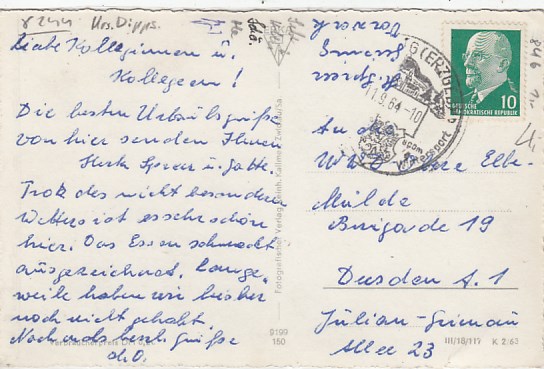 Urs. Dipps.
Liebe Kolleginnen u.
Kollegen!
Die besten Urlaubsgrüße
von hier senden Ihnen
Herta Speer u. Gatte.
Trotz des nicht besonderen
Wetters ist es sehr schön
hier. Das Essen schmeckt
ausgezeichnet. Lange-
weile haben wir bisher
noch nicht gehabt.
Nochmals herzl. Grüße
d.O.
Verbraucherpreis DM
9199
150
Fotografischer Verlag
11.9.64-10
(ERZGEB)
sport
DEUTSCHE
DEMOKRATISCHE REPUBLIK
10
An die
Obere Elbe-
Mulde
Brigade 19
Dresden A. 1
Julian-Grimau
Allee 23
III/18/117 K 2/63